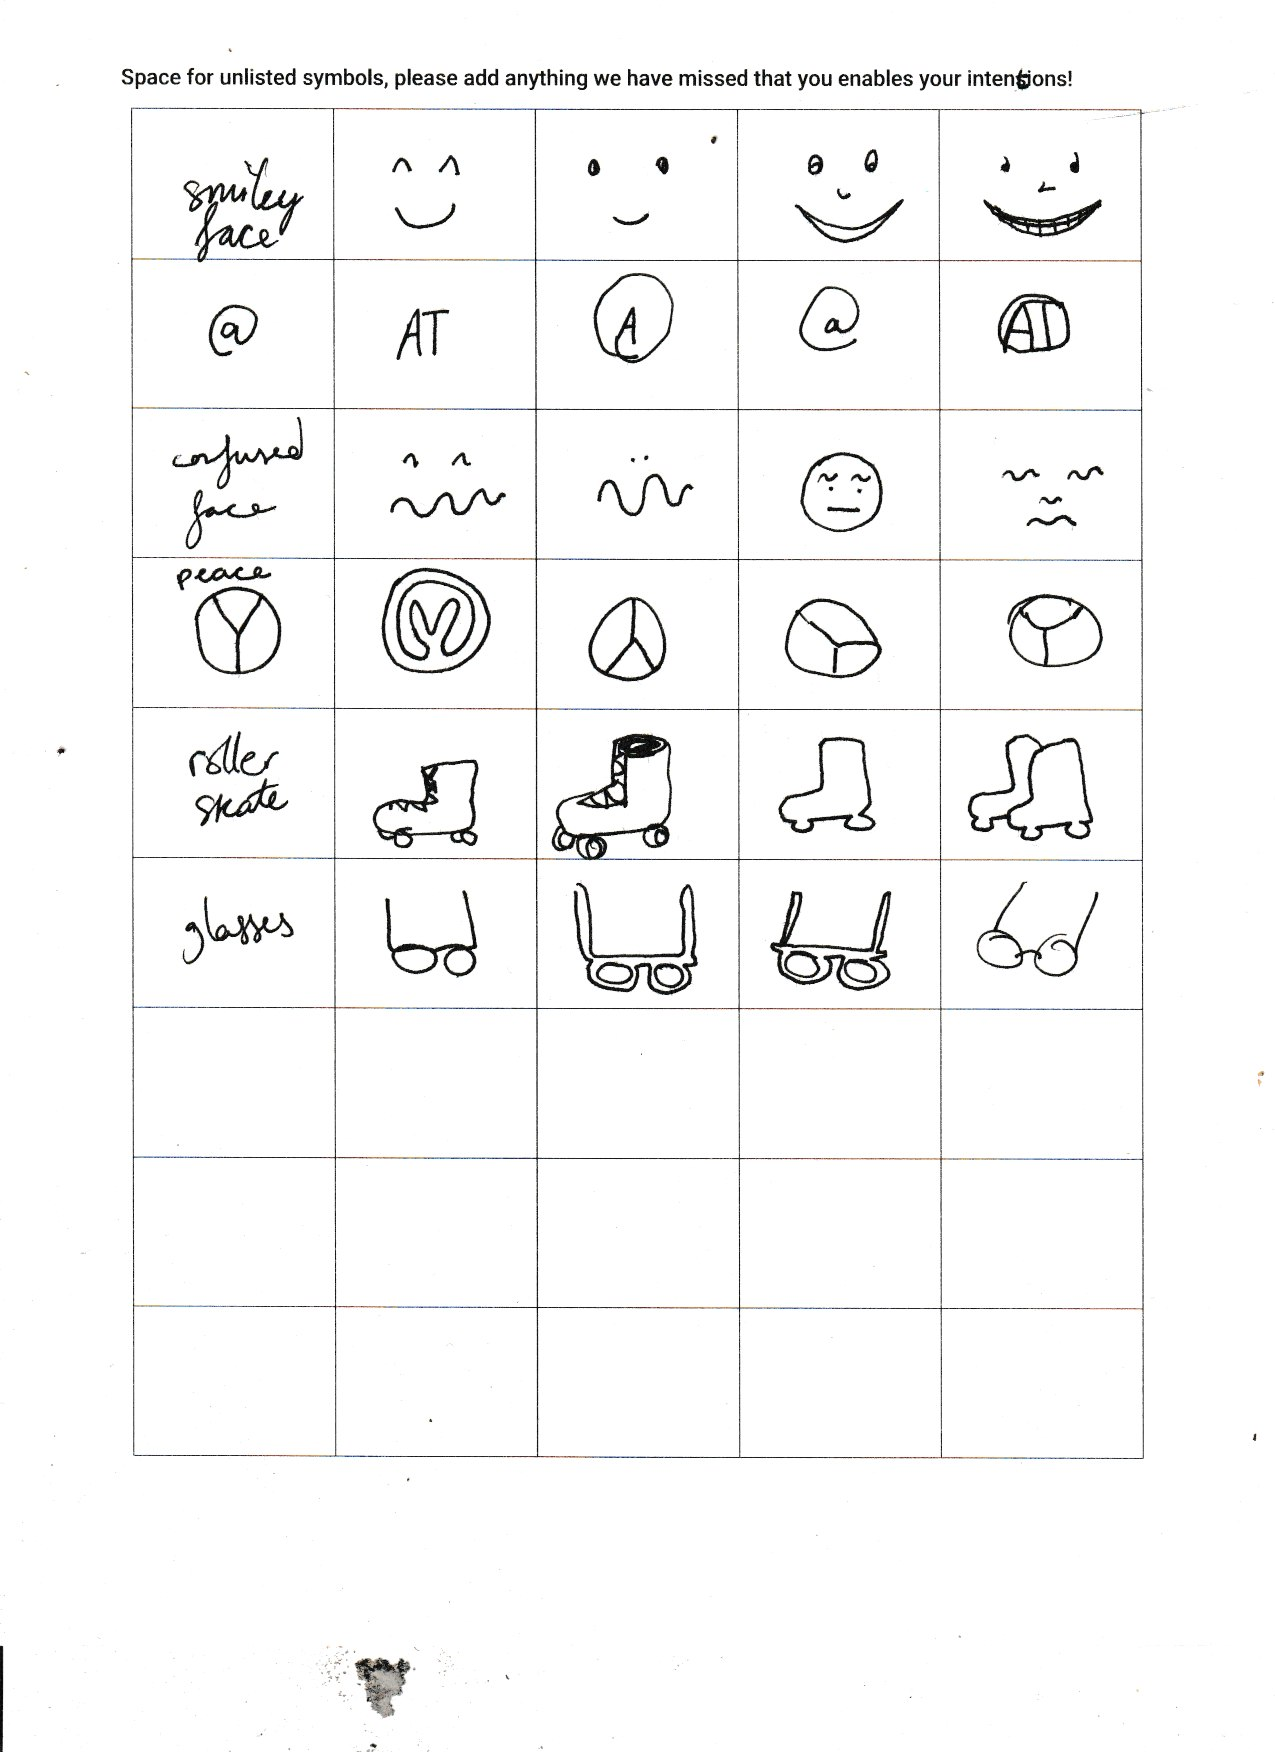 Space for unlisted symbols, please add anything we have missed that you enables your intentions!
smiley
face
@ AT A @ AT
confused
face
peace
roller
skate
glasses